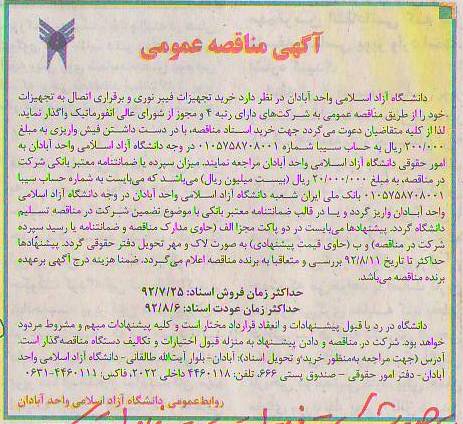 آگهی مناقصه عمومی
دانشگاه آزاد اسلامی واحد آبادان در نظر دارد خرید تجهیزات فیبر نوری و برقراری اتصال به تجهیزات
خود را از طریق مناقصه عمومی به شرکت‌های دارای رتبه ۴ و مجوز از شورای عالی انفورماتیک واگذار نماید.
لذا از کلیه متقاضیان دعوت می‌گردد جهت خرید اسناد مناقصه، با در دست داشتن فیش واریزی به مبلغ
۳۰۰/۰۰۰ ریال به حساب سیبا شماره ۰۱۰۵۷۵۸۷۰۸۰۰۱ در وجه دانشگاه آزاد اسلامی واحد آبادان به
امور حقوقی دانشگاه آزاد اسلامی واحد آبادان مراجعه نمایند. میزان سپرده یا ضمانتنامه بانکی شرکت
در مناقصه، به مبلغ ۲۰/۰۰۰/۰۰۰ ریال (بیست میلیون ریال) می‌باشد که می‌بایست به شماره حساب سیبا
۰۱۰۵۷۵۸۷۰۸۰۰۱ بانک ملی ایران شعبه دانشگاه آزاد اسلامی واحد آبادان در وجه دانشگاه آزاد اسلامی
واحد آبادان واریز گردد و یا در قالب ضمانتنامه معتبر بانکی با موضوع تضمین شرکت در مناقصه تسلیم
دانشگاه گردد. پیشنهادها می‌بایست در دو پاکت مجزا الف (حاوی مدارک مناقصه و ضمانتنامه یا رسید سپرده
شرکت در مناقصه) و ب (حاوی قیمت پیشنهادی) به صورت لاک و مهر تحویل دفتر حقوقی گردد. پیشنهادها
حداکثر تا تاریخ ۹۲/۸/۱۱ بررسی و متعاقبا به برنده مناقصه اعلام می‌گردد. ضمنا هزینه درج آگهی برعهده
برنده مناقصه می‌باشد.
حداکثر زمان فروش اسناد: ۹۲/۷/۲۵
حداکثر زمان عودت اسناد: ۹۲/۸/۶
دانشگاه در رد یا قبول پیشنهادات و انعقاد قرارداد مختار است و کلیه پیشنهادات مبهم و مشروط مردود
خواهد بود. شرکت در مناقصه و دادن پیشنهاد به منزله قبول اختیارات و تکالیف دستگاه مناقصه‌گذار است.
آدرس (جهت مراجعه به‌منظور خرید و تحویل اسناد): آبادان- بلوار آیت‌الله طالقانی- دانشگاه آزاد اسلامی واحد
آبادان- دفتر امور حقوقی – صندوق پستی ۶۶۶، تلفن: ۴۴۶۰۱۱۸ داخلی ۲۰۲۲، فاکس: ۴۴۶۰۱۱۱-۰۶۳۱
روابط عمومی دانشگاه آزاد اسلامی واحد آبادان